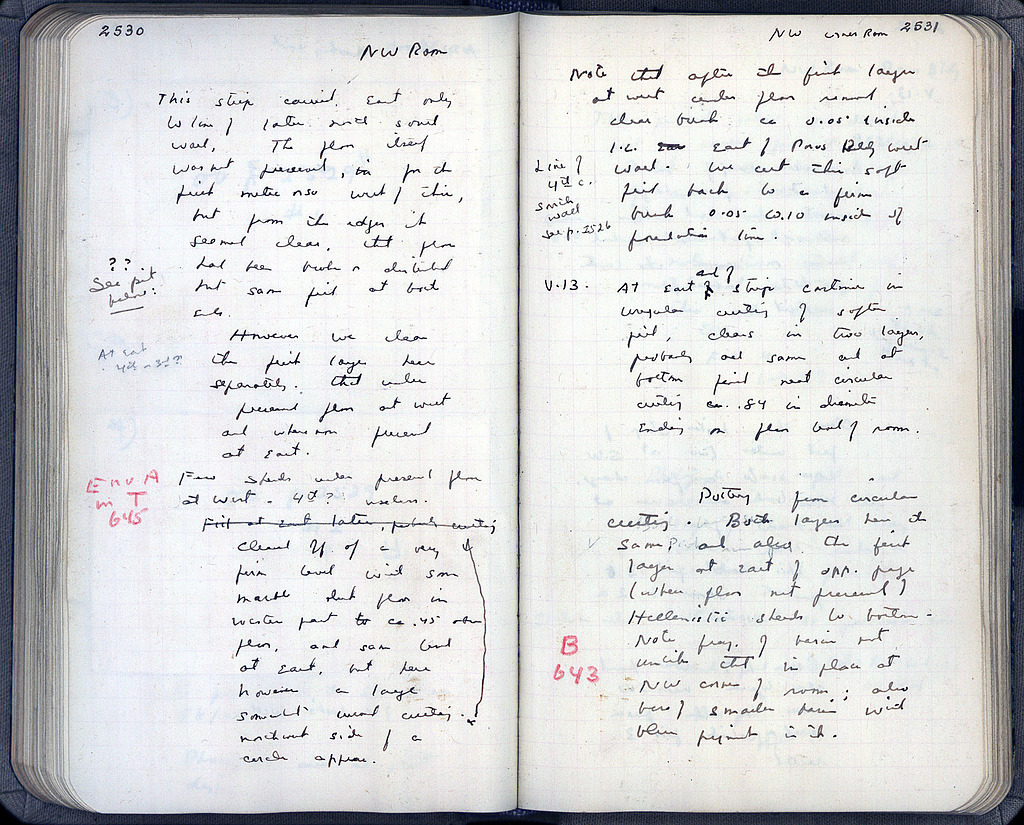 2530
NW Room
This strip East only
to line of later mid
wall, The floor itself
was not present, for the
first metre or so west of this,
but from the edges it
seemed clear, that floor
had been broken or disturbed
but same fill at both
ends.
? ?
See pit
below:
However we clean
the first layer here
separately. that under
present floor at west
and where non present
at East.
At East
4th - 3rd?
Few sherds under present floor
at West - 4th? useless.
Env A
in T
645
Fill at East later, probably cutting
Cleaned up of a very
firm level with some
marble dust floor in
western part to ca .45 above
floor, and same level
at East, but here
however a large
somewhat cutting.
northwest side of a
circle appear.
2531
NW corner Room
Note that after the first layer
at west under floor removed
clear ca 0.05 inside
i.e. East of Poros West
wall. We cut this soft
fill back to a firm
0.05 to 0.10 inside of
foundation line.
Line of
4th c.
South
wall
see p. 2526
V.13. At East end of strip continue in
irregular cutting of softer
fill, cleans in two layers,
probably and same and at
bottom find neat circular
cutting ca. .84 in diameter
Ending on floor level of room.
Pottery from circular
cutting. Both layers here the
same and also the first
layer at East of opp. page
(where floor not present)
Hellenistic sherds to bottom -
B
643
Note frag. of basin not
unlike that in place at
NW corner of room; also
base of smaller basin with
blue pigment in it.